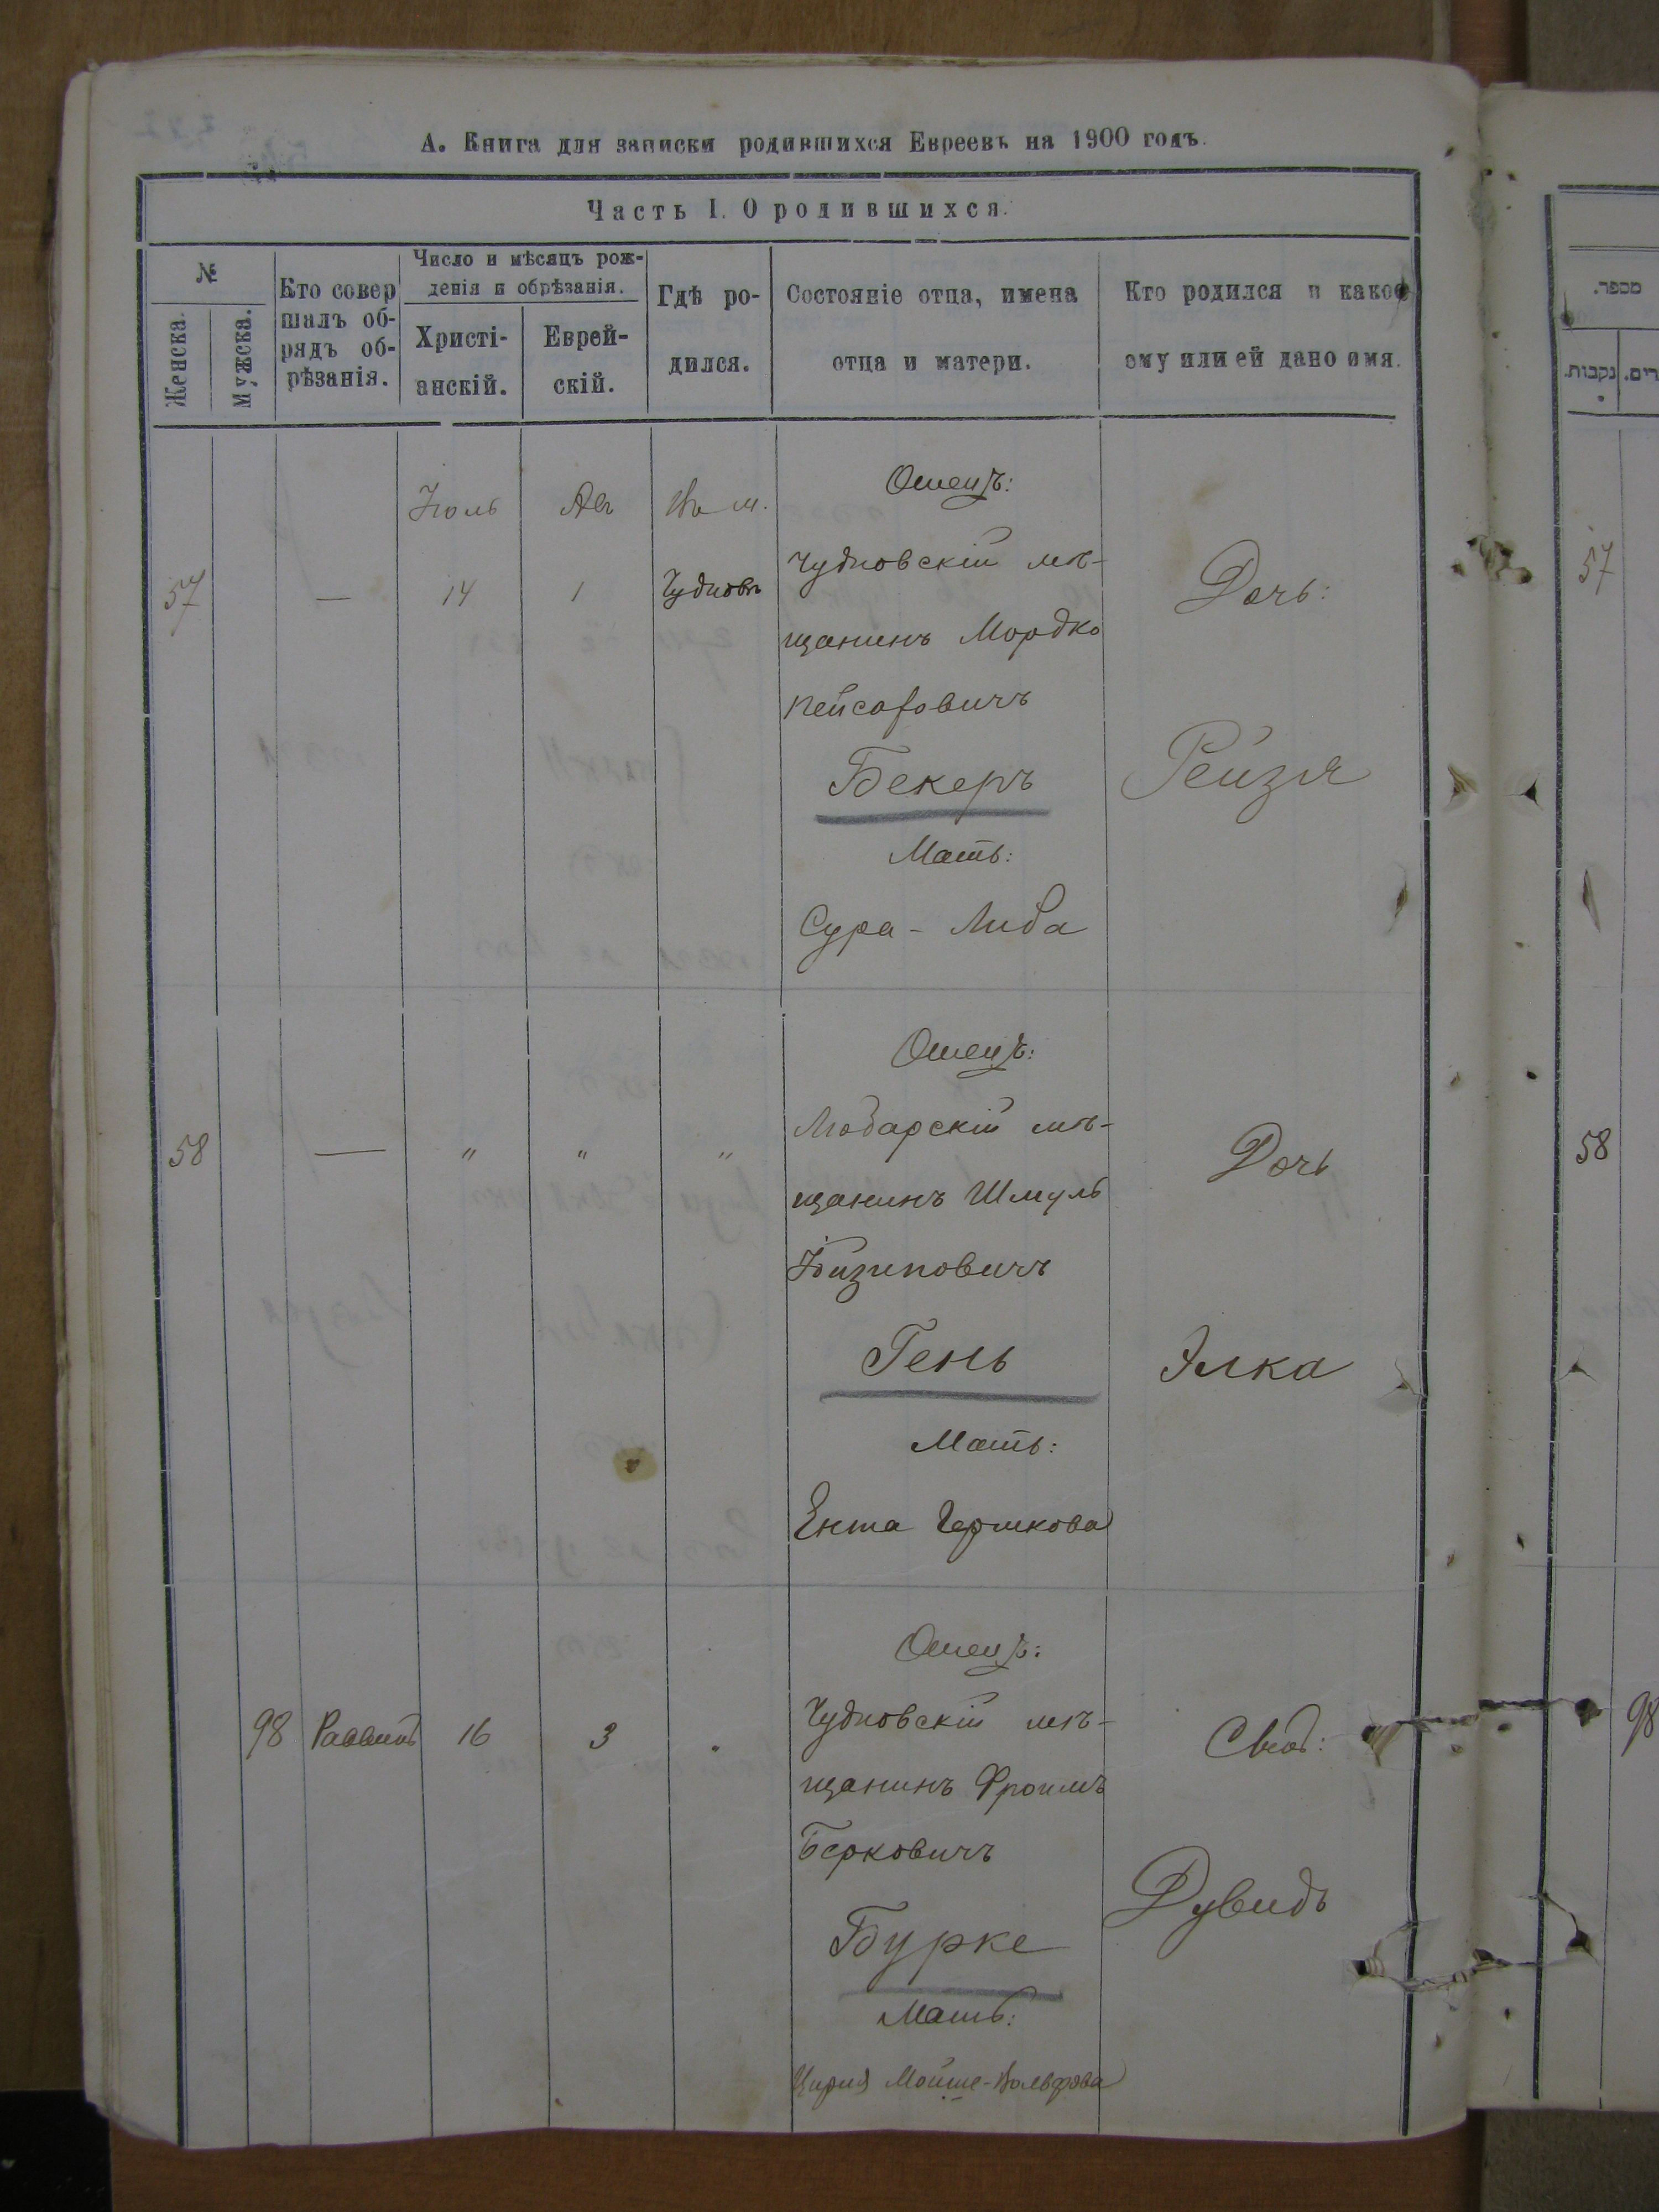 А. Книга для записки родившихся Евреевъ на 1900 годъ.
Часть I. О родившихся.
№
Женска.
Мужска.
Кто совер
шалъ об-
рядъ об-
рѣзанія.
Число и мѣсяцъ рож-
денія и обрѣзанія.
Христі-
анскій.
Еврей-
скій.
Гдѣ ро-
дился.
Состояніе отца, имена
отца и матери.
Кто родился и какое
ему или ей дано имя.
מספר.
נקבות.
Іюль
Авъ
Въ м.
Отецъ:
57
—
14
1
Чудновъ
Чудновскій мѣ-
щанинъ Мордко
Пейсаховичъ
Бекеръ
Мать:
Сура - Либа
Дочь:
Рейзя
57
58
—
"
"
"
Отецъ:
Любарскій мѣ-
щанинъ Шмуль
Гень
Мать:
Ента Гершкова
Дочь
Элка
58
98
Раввинъ
16
3
"
Отецъ:
Чудновскій мѣ-
щанинъ Фроимъ
Берковичъ
Бурке
Мать:
Мойше-Вольфова
Сынъ:
Дувидъ
98